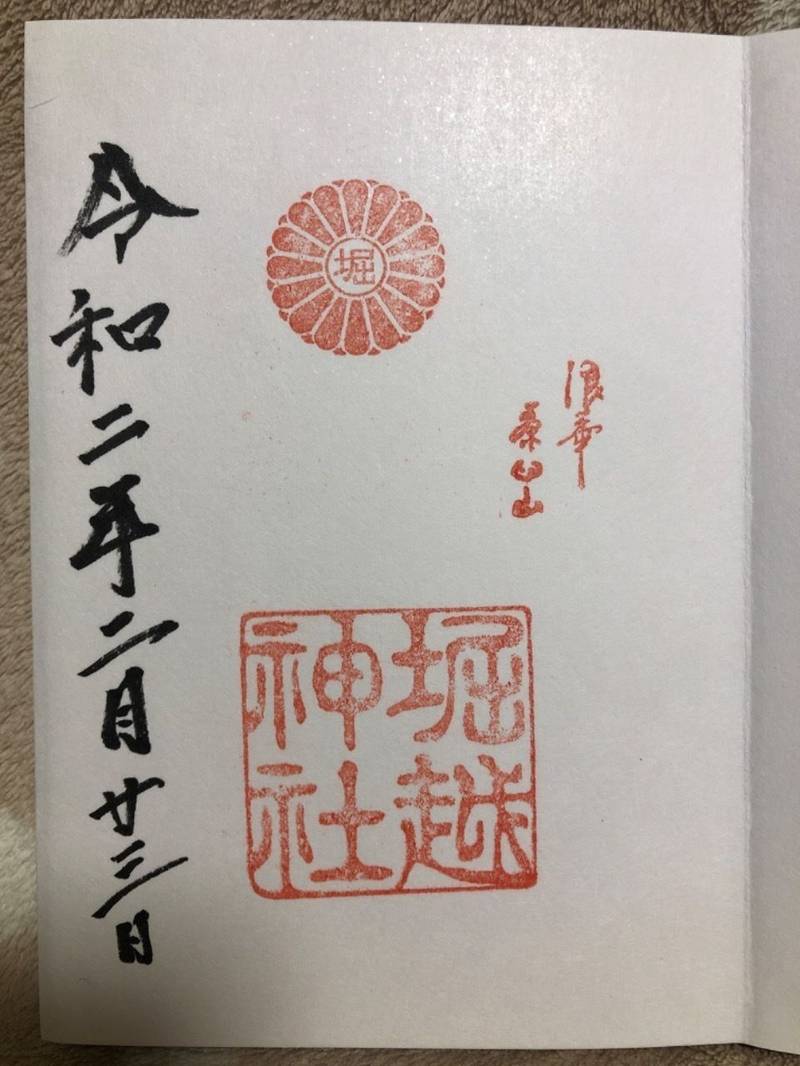 浪華
茶臼山
堀
堀越
神社
令和二年二月廿三日